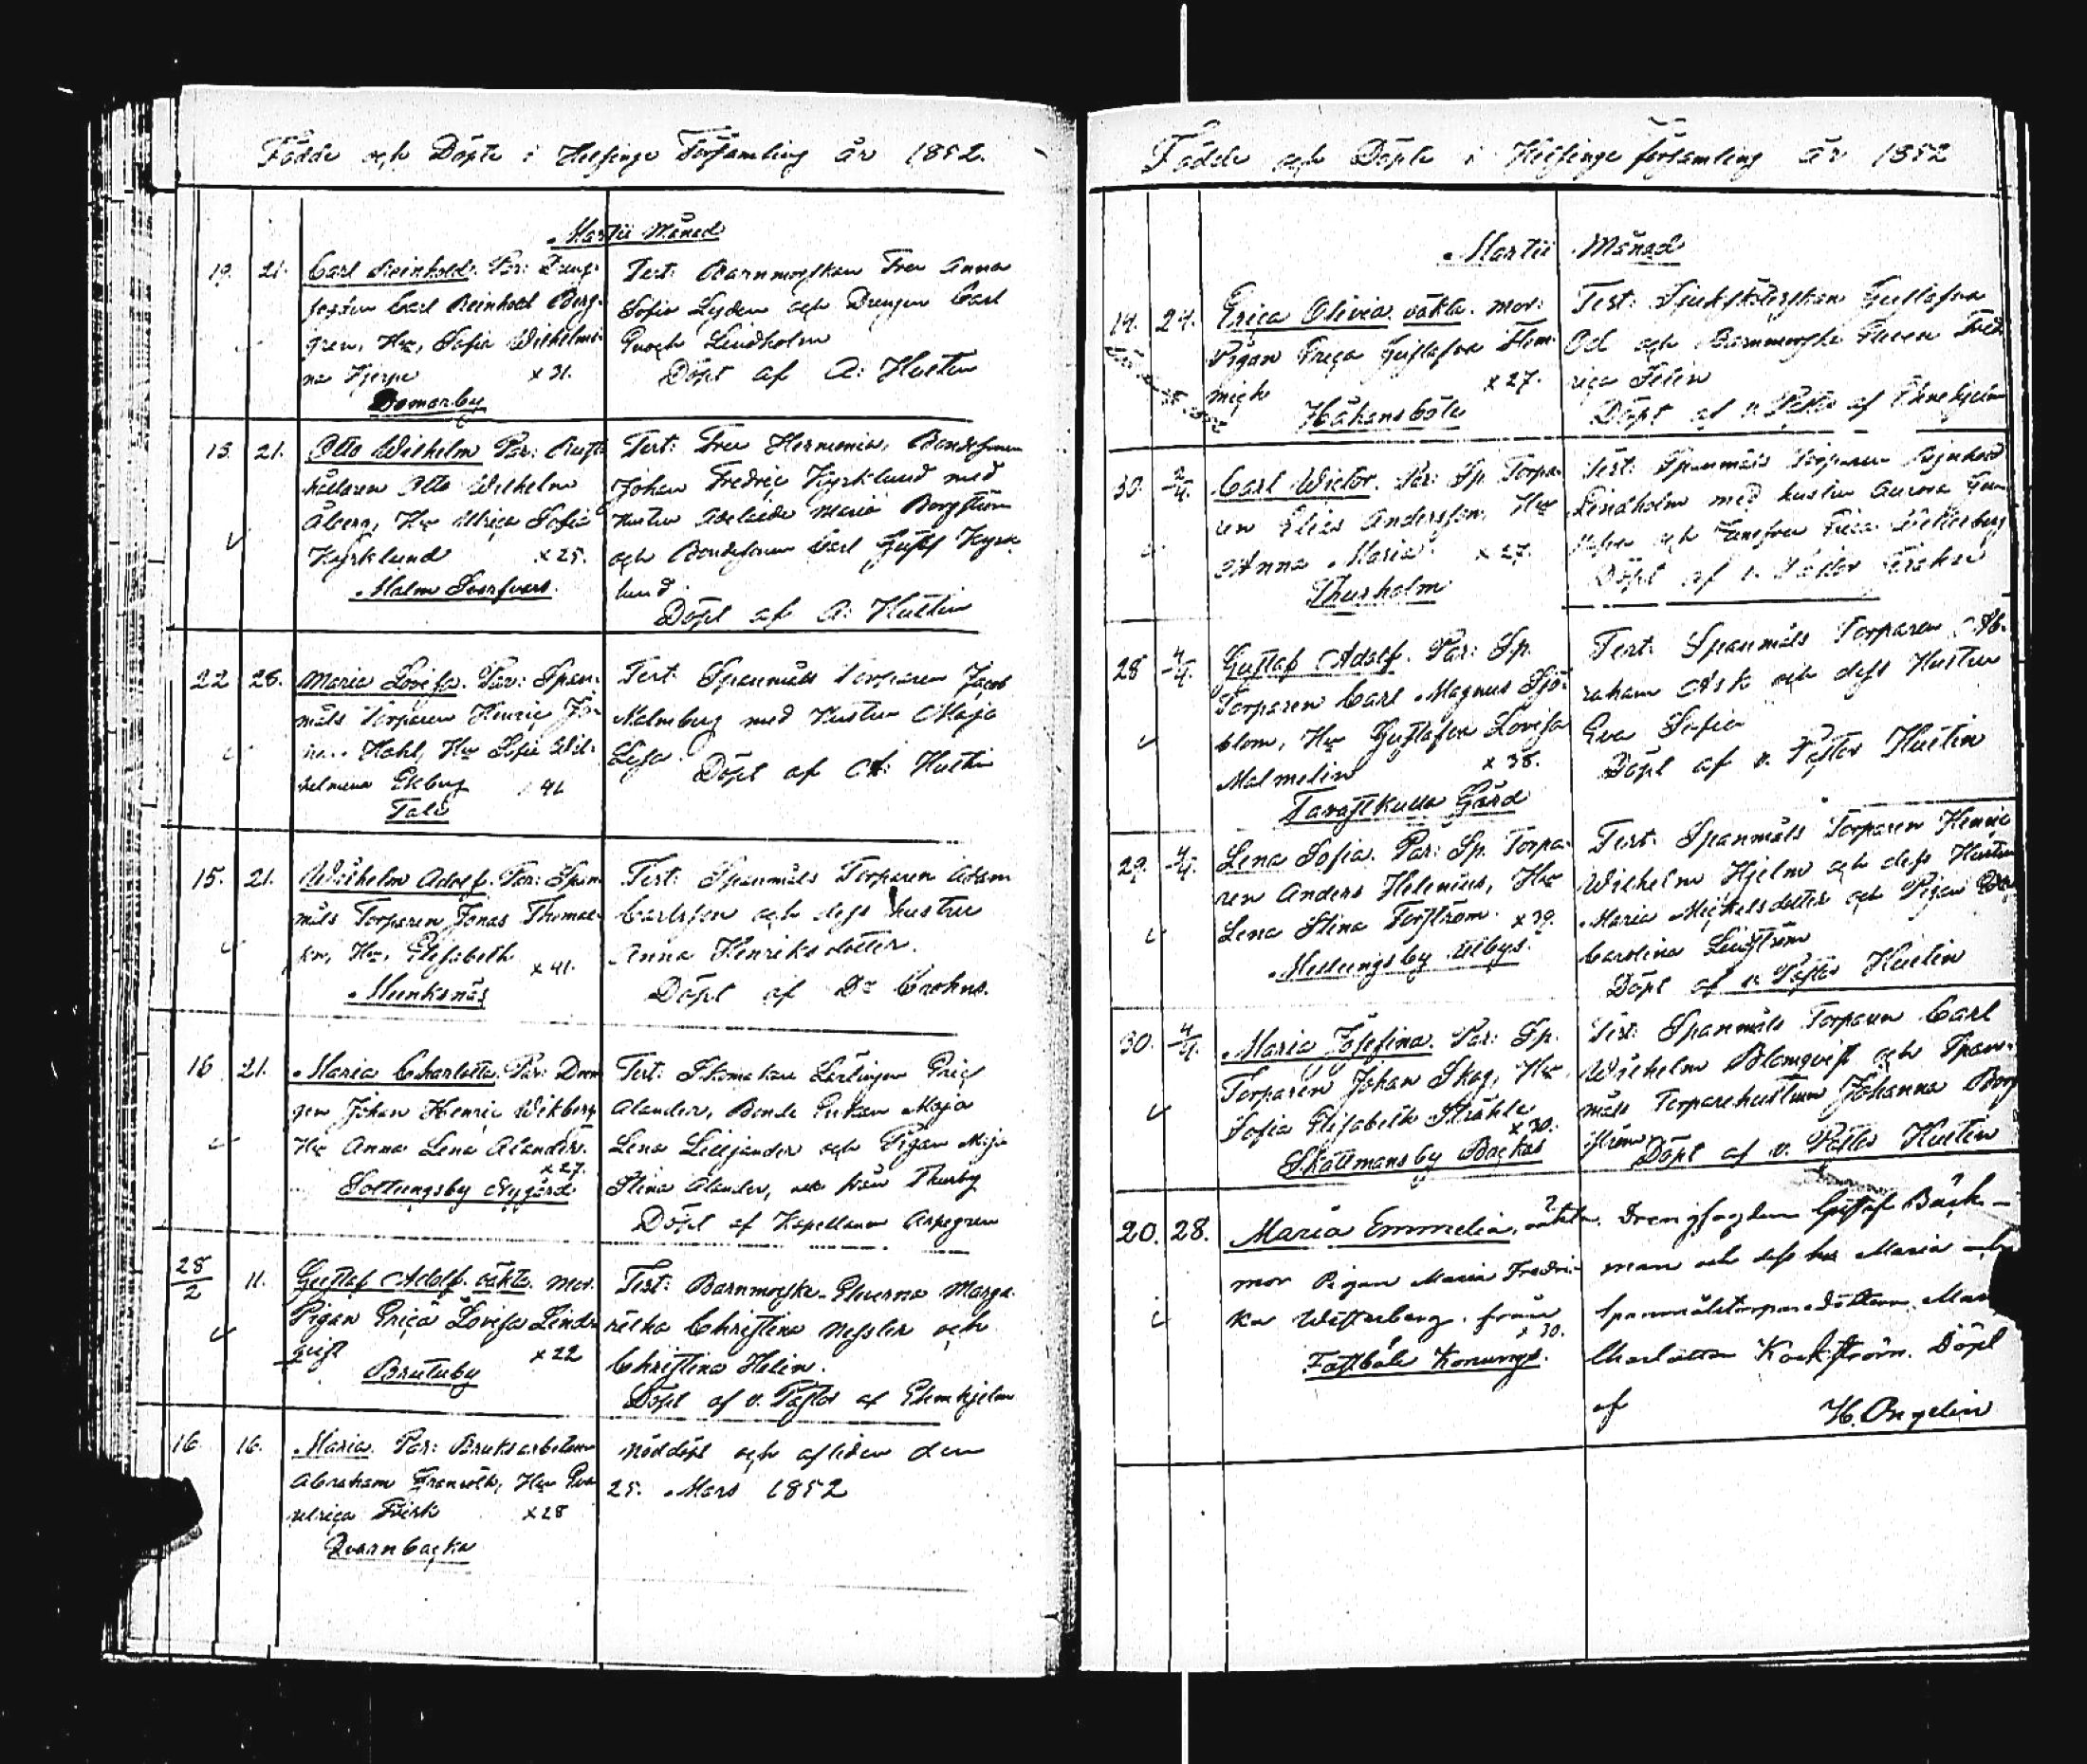 Födde och Döpte i Helsinge Församling år 1852.
Martii Månad
19. 21. Carl Reinhold. Par: Dreng-
fogten Carl Reinhold Berg-
gren, Hu, Sofia Wilhelmi-
na Hjerpe x 31.
Domarby
Test: Barnmorskan Fru Anna
Sofia Lyden och Drengen Carl
Enoch Lindholm
Döpt af A: Hustin
15. 21. Otto Wilhelm Par:
hållaren Otto Wilhelm
Åberg, Hu Ulrica Sofia
Kyrklund x 25.
Malm
Test: Fru Bondesonen
Johan Fredric Kyrklund med
Hustru Adelaide Maria Borgström
och Bondesonen Carl Gustaf Kyrk-
lund
Döpt af A: Hustin
22 26. Maria Lovisa. Par: Span-
måls Torparen Henric
Hahl, Hu Sofia Wil-
helmina Ekberg 41
Tali
Test: Spanmåls Torparen Jacob
Malmberg med Hustru Maja
Lisa. Döpt af A: Hustin
15. 21. Wilhelm Adolf. Par: Span-
måls Torparen Jonas
Hu, Elisabeth
x 41.
Munksnäs
Test: Spanmåls Torparen Adam
Carlsson och dess hustru
Anna Henriksdotter.
Döpt af Dr Crohns.
16 21. Maria Charlotta. Par: Dren-
gen Johan Henric Wikberg
Hu Anna Lena Alander.
x 27.
Sottungsby Nygård
Test: Skomakare Lärlingen Eric
Alander, Bonde Enkan Maja
Lena Lilljander och Pigan Maja
Stina Alander, alla från Thurby
Döpt af Kapellanen Aspegren
28/2 11. Gustaf Adolf. oäkta. mor.
Pigan Erica Lovisa Lind-
qvist x 22
Brutuby
Test: Barnmorske-Eleverna Marga-
retha Christina Nessler och
Christina Helin.
Döpt af v. Pastor af Ehnehjelm
16. 16. Maria. Par: Bruksarbetaren
Abraham Granroth, Hu Eva
Ulrica Frisk x 28
Qvarnbacka
Nöddöpt och afliden den
25. Mars 1852
Födde och Döpte i Helsinge församling år 1852
Martii Månad
14. 24. Erica Olivia. oäkta. mor:
Pigan Erica Gustafva
x 27.
Håkansböle
Test: Sjuksköterskan Gustafva
Od och Barnmorske Eleven Fred-
rica Felin
Döpt af v. Pastor af Ehnehjelm
30. 2/4. Carl Wictor. Par: Sp. Torpa-
ren Elias Andersson, Hu
Anna Maria x 27.
Thusholm
Test: Spanmåls Torparen Reinhold
Lindholm med hustru Aurora
och Jungfrun Wetterberg
Döpt af v. Pastor
28 4/4. Gustaf Adolf. Par: Sp.
Torparen Carl Magnus Sjö-
blom, Hu Gustafva Lovisa
Malmelin x 38.
Tavastkulla Gård
Test: Spanmåls Torparen Ab-
raham Ask och dess Hustru
Eva Sofia
Döpt af v. Pastor Hustin
29. 4/4. Lena Sofia. Par: Sp. Torpa-
ren Anders Helenius, Hu
Lena Stina Forsström. x 39.
Mellungsby Albys.
Test: Spanmåls Torparen Henric
Wilhelm Hjelm och dess Hustru
Maria Michelsdotter och Pigan Eva
Carolina Lindström
Döpt af v. Pastor Hustin
30. 4/4. Maria Josefina. Par: Sp.
Torparen Johan Skog, Hu,
Sofia Elisabeth Stråhle
x 30.
Skattmansby Backas
Test: Spanmåls Torparen Carl
Wilhelm Blomqvist och Span-
måls Torparehustrun Johanna Borg-
ström
Döpt af v. Pastor Hustin
20. 28. Maria Emmelia, oäkta.
mor Pigan Maria Fredri-
ka Wetterberg. från
x 30.
Fastböle Konungs.
Drengfogden Gustaf Bäck-
man och dess hu Maria
Spanmålstorparedottern,
Charlotta Kackström. Döpt
af H. Ongelin